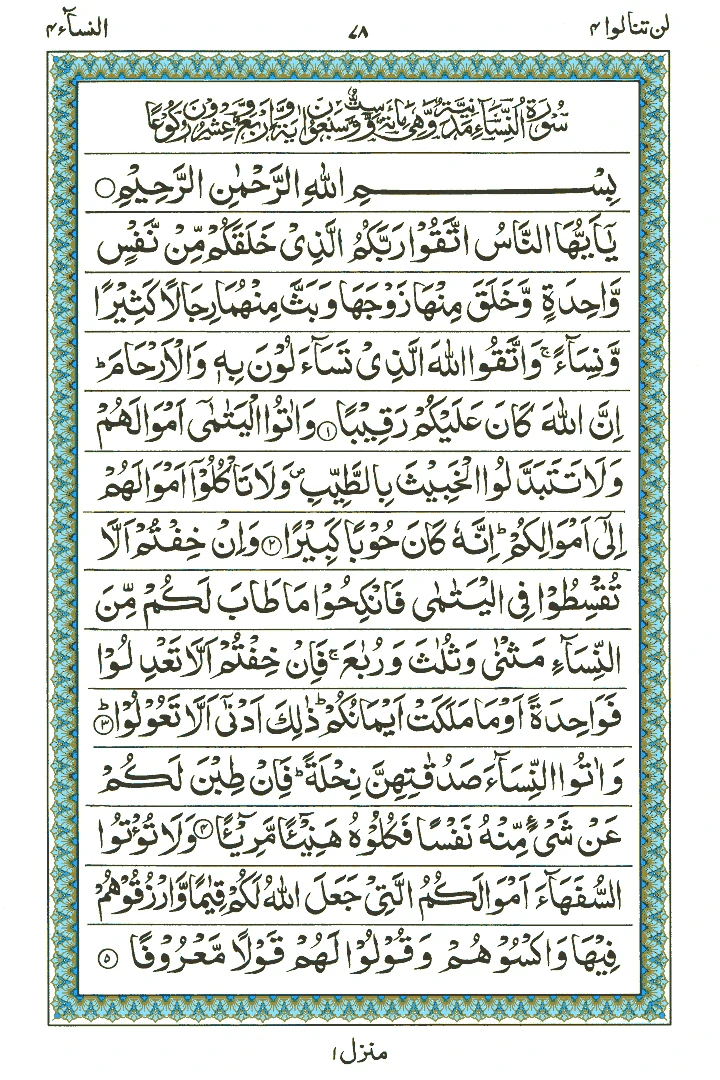 لن تنالوا ۴ ۷۸ النسآء ۴
سُوْرَةُ النِّسَآءِ مَدَنِيَّةٌ وَّهِيَ مِائَةٌ وَّسِتٌّ وَّسَبْعُوْنَ اٰيَةً وَّاَرْبَعٌ وَّعِشْرُوْنَ رُكُوْعًا
بِسْمِ اللهِ الرَّحْمٰنِ الرَّحِيْمِ ○
يٰۤاَيُّهَا النَّاسُ اتَّقُوْا رَبَّكُمُ الَّذِىْ خَلَقَكُمْ مِّنْ نَّفْسٍ
وَّاحِدَةٍ وَّخَلَقَ مِنْهَا زَوْجَهَا وَبَثَّ مِنْهُمَا رِجَالًا كَثِيْرًا
وَّنِسَآءً ۚ وَاتَّقُوا اللهَ الَّذِىْ تَسَآءَلُوْنَ بِهٖ وَالْاَرْحَامَ ؕ
اِنَّ اللهَ كَانَ عَلَيْكُمْ رَقِيْبًا ۱ وَاٰتُوا الْيَتٰمٰٓى اَمْوَالَهُمْ
وَلَا تَتَبَدَّلُوا الْخَبِيْثَ بِالطَّيِّبِ ۪ وَلَا تَاْكُلُوْۤا اَمْوَالَهُمْ
اِلٰٓى اَمْوَالِكُمْ ؕ اِنَّهٗ كَانَ حُوْبًا كَبِيْرًا ۲ وَاِنْ خِفْتُمْ اَلَّا
تُقْسِطُوْا فِى الْيَتٰمٰى فَانْكِحُوْا مَا طَابَ لَكُمْ مِّنَ
النِّسَآءِ مَثْنٰى وَثُلٰثَ وَرُبٰعَ ۚ فَاِنْ خِفْتُمْ اَلَّا تَعْدِلُوْا
فَوَاحِدَةً اَوْ مَا مَلَكَتْ اَيْمَانُكُمْ ؕ ذٰلِكَ اَدْنٰٓى اَلَّا تَعُوْلُوْا ؕ ۳
وَاٰتُوا النِّسَآءَ صَدُقٰتِهِنَّ نِحْلَةً ؕ فَاِنْ طِبْنَ لَكُمْ
عَنْ شَىْءٍ مِّنْهُ نَفْسًا فَكُلُوْهُ هَنِيْٓـئًا مَّرِيْٓـئًا ۴ وَلَا تُؤْتُوا
السُّفَهَآءَ اَمْوَالَكُمُ الَّتِىْ جَعَلَ اللهُ لَكُمْ قِيٰمًا وَّارْزُقُوْهُمْ
فِيْهَا وَاكْسُوْهُمْ وَقُوْلُوْا لَهُمْ قَوْلًا مَّعْرُوْفًا ۵
منزل ۱